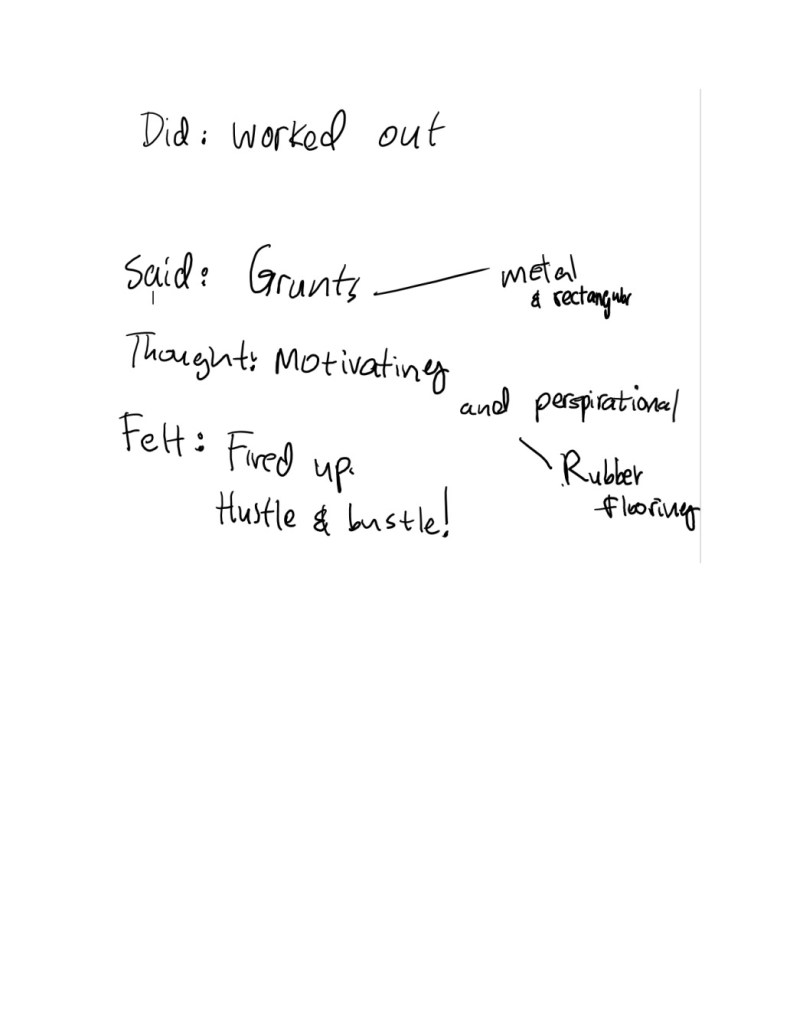 Did: worked out
Said: Grunts
metal
& rectangular
Thought: Motivating
and perspirational
Felt: Fired up.
Rubber
flooring
Hustle & bustle!